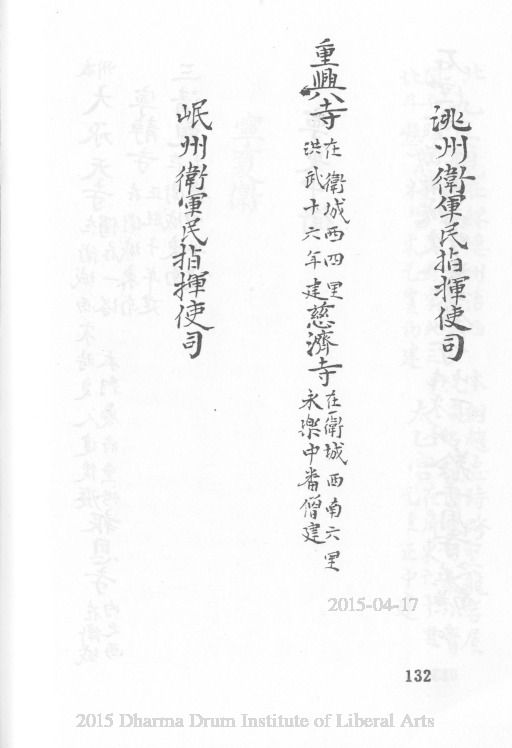 洮州衛軍民指揮使司
重興寺在衛城西四里洪武十六年建慈濟寺在衛城西南六里永樂中番僧建
岷州衛軍民指揮使司
2015-04-17
132
2015 Dharma Drum Institute of Liberal Arts